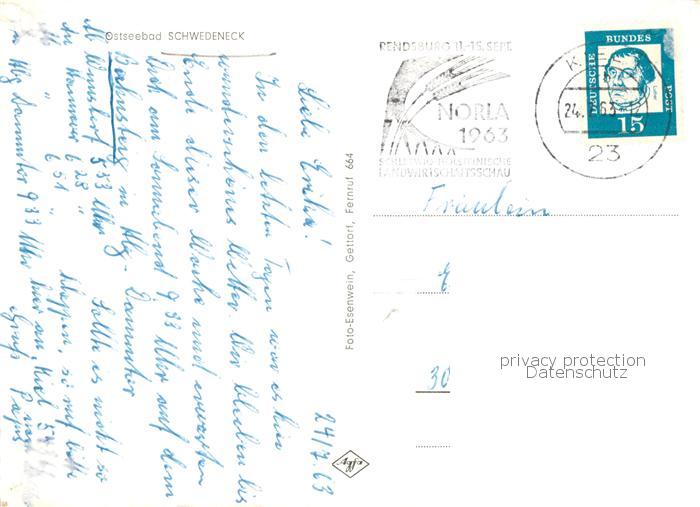 Ostseebad SCHWEDENECK
24/7.63
Liebe Erika!
In den letzten Tagen war es hier
wunderschönes Wetter. Wir bleiben bis
Ende dieser Woche und erwarten
Dich am Sonnabend 9 33 Uhr auf dem
Bahnsteig in Hbg. Dammtor
Ab Wunstorf 5 53 Uhr
An Hannover 6 28 "
Ab " 6 51 "
in Hbg Dammtor 9 33 Uhr
Sollte es nicht so
klappen, so ruf bitte
hier an, Kiel
Gruß Papa
Foto-Esenwein, Gettorf, Fernruf 664
Agfa
RENDSBURG 11.-15. SEPT.
NORLA
1963
SCHLESWIG-HOLSTEINISCHE
LANDWIRTSCHAFTSSCHAU
24.7.63
23
DEUTSCHE
BUNDES
POST
15
Fräulein
E.
30
privacy protection
Datenschutz